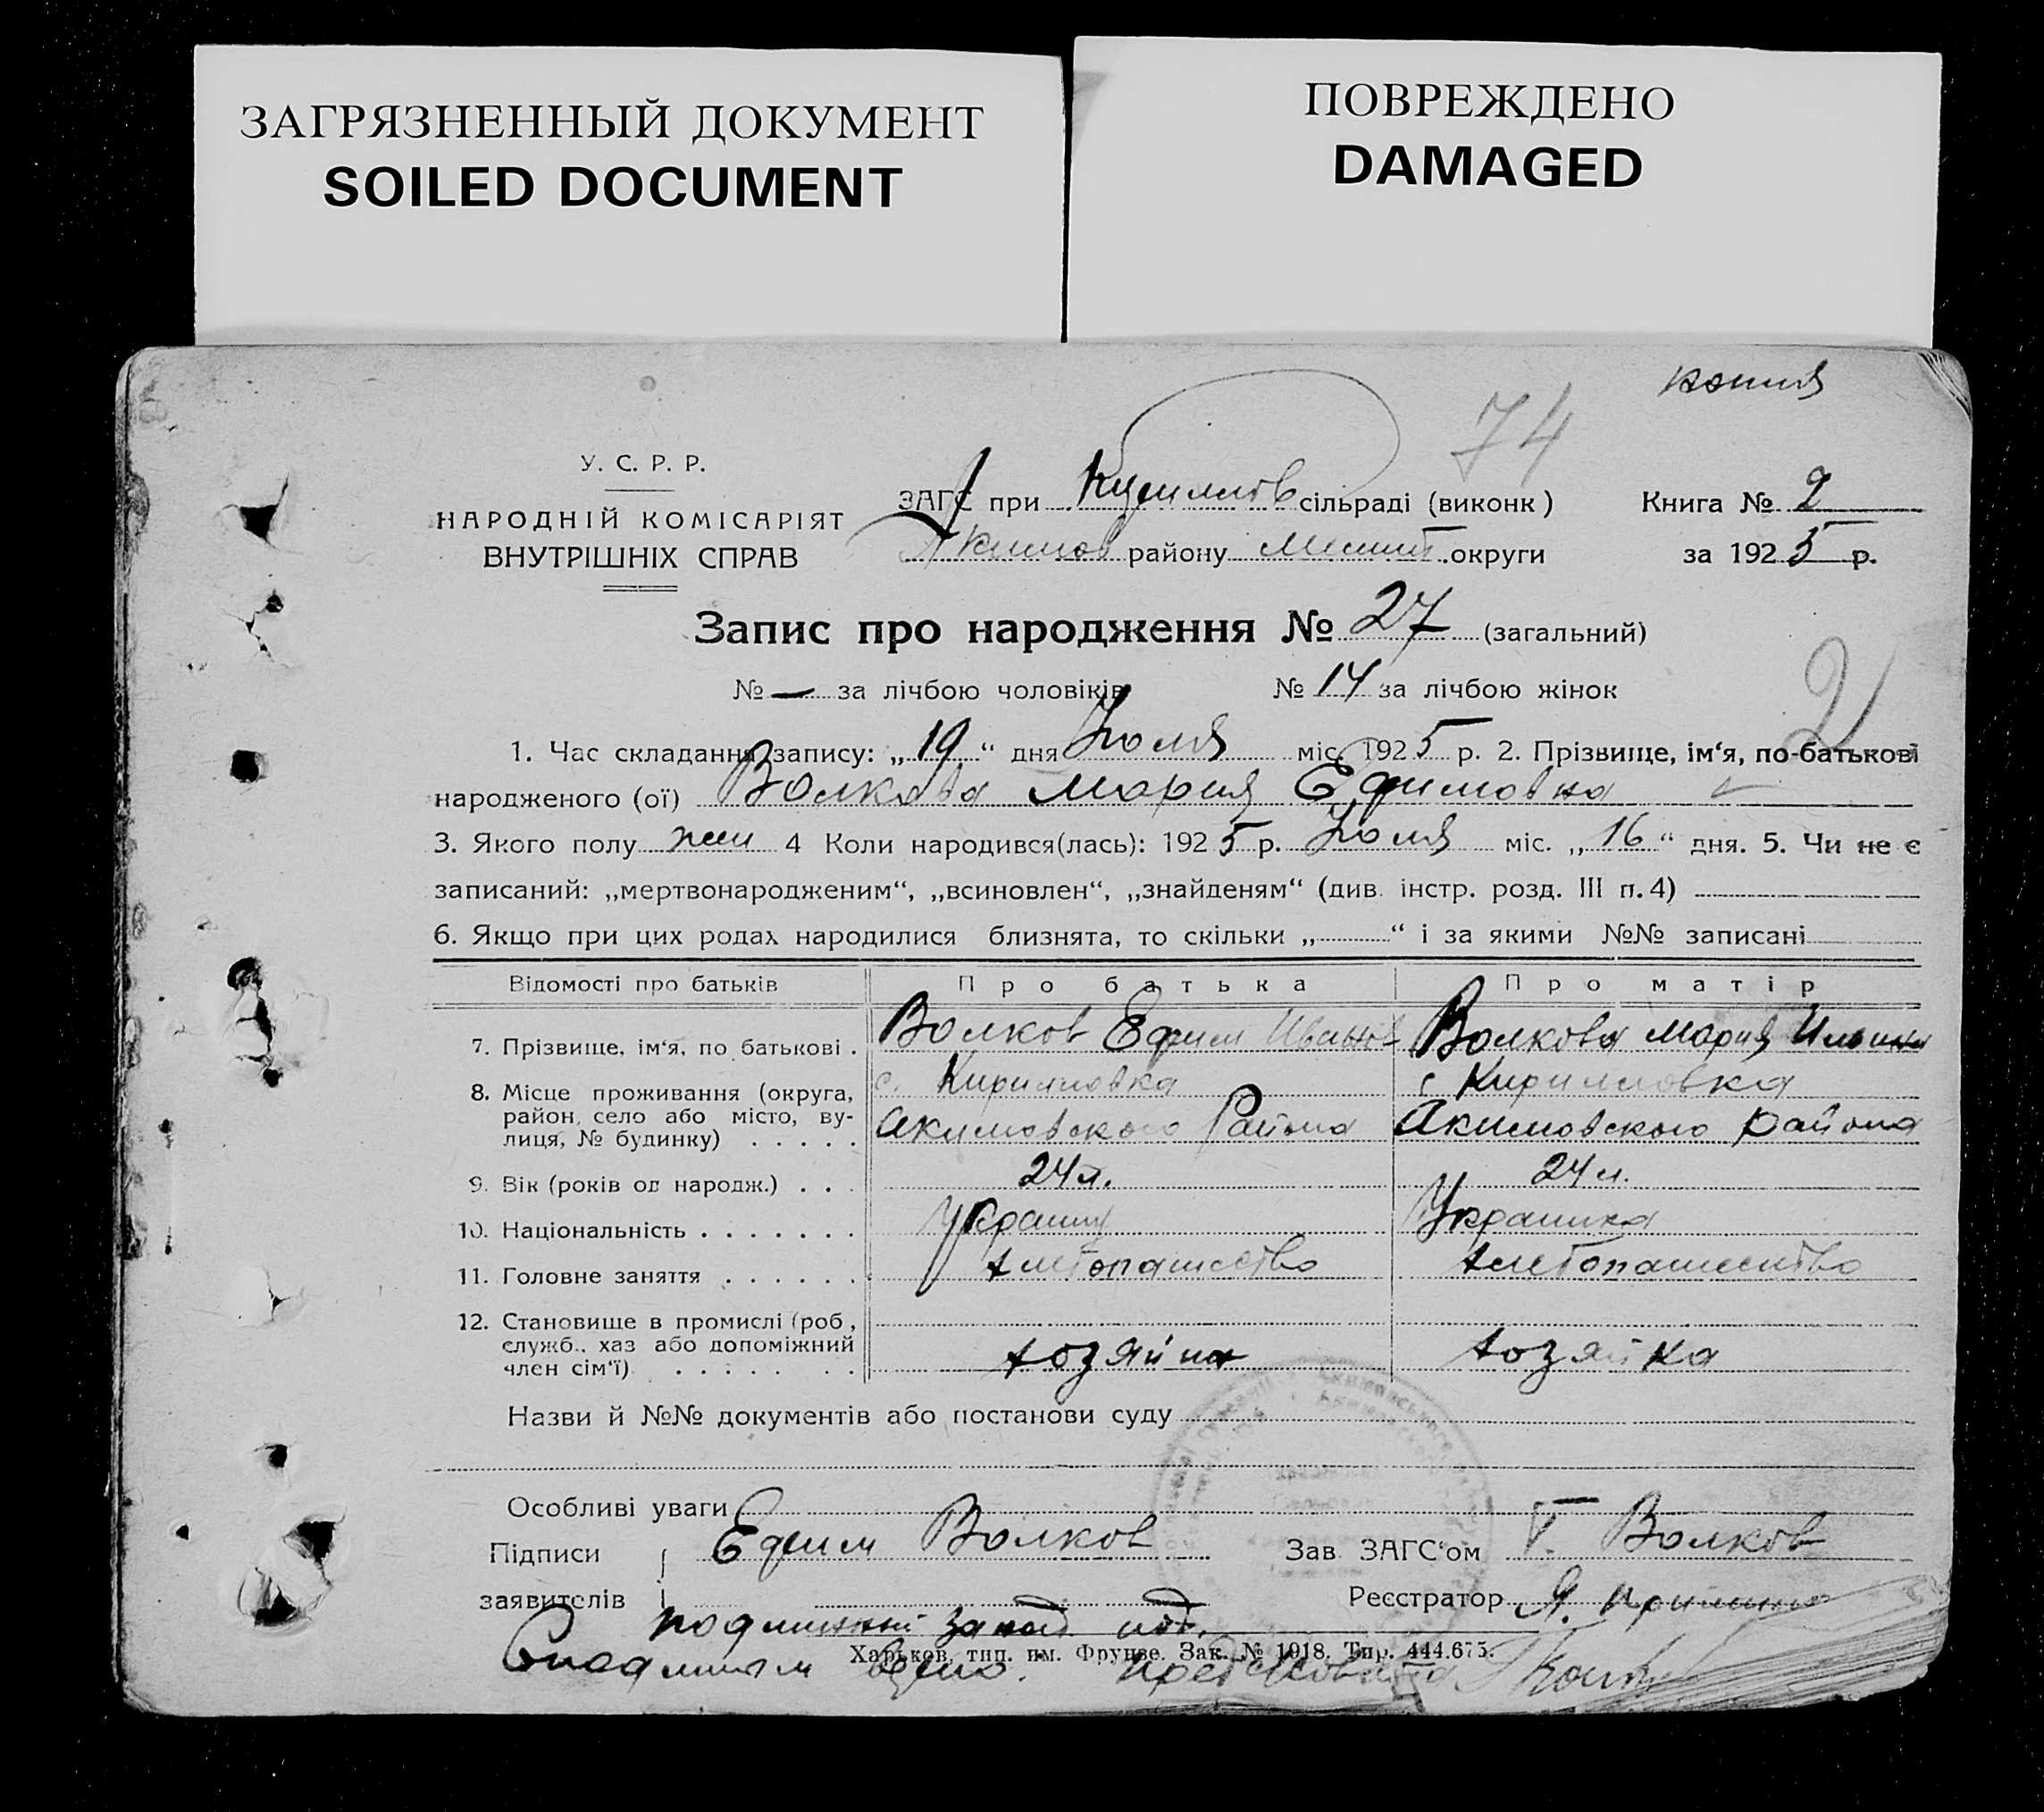 ЗАГРЯЗНЕННЫЙ ДОКУМЕНТ
SOILED DOCUMENT
ПОВРЕЖДЕНО
DAMAGED
копия
74
У. С. Р. Р.
НАРОДНІЙ КОМІСАРІЯТ
ВНУТРІШНІХ СПРАВ
ЗАГС при сільраді (виконк)
Акимов району округи
Книга № 2
за 1925 р.
Запис про народження № 27 (загальний)
№ — за лічбою чоловіків № 14 за лічбою жінок
1. Час складання запису: „19“ дня Июля міс. 1925 р. 2. Прізвище, ім‘я, по-батькові
народженого (ої) Волкова Мария Ефимовна
3. Якого полу жен 4 Коли народився(лась): 1925 р. Июля міс. „16“ дня. 5. Чи не є
записаний: „мертвонародженим“, „всиновлен“, „знайденям“ (див. інстр. розд. III п. 4)
6. Якщо при цих родах народилися близнята, то скільки „ “ і за якими №№ записані
Відомості про батьків Про батька Про матір
7. Прізвище, ім‘я, по батькові . Волков Ефим Иванов Волкова Мария Ильинична
8. Місце проживання (округа, с. Кирилловка с Кирилловка
район, село або місто, ву-
лиця, № будинку) . . . . . Акимовского Района Акимовского района
9. Вік (років од народж.) . . . 24 л. 24 л.
10. Національність . . . . . . . Украинец Украинка
11. Головне заняття . . . . . . хлебопашество хлебопашество
12. Становище в промислі (роб,
служб., хаз або допоміжний
член сім‘ї) . . . . . . . хозяин хозяйка
Назви й №№ документів або постанови суду
Особливі уваги
Підписи Ефим Волков Зав ЗАГС‘ом Волков
заявителів Реєстратор Я.
подлинный за под.
Харьков, тип. им. Фрунзе. Зак. № 1918. Тир. 444.675.
С подлинным верно.